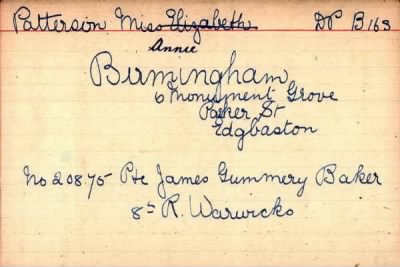 Patterson Miss Elizabeth DP B163
Annie
Birmingham
6 Monument Grove
Parker St
Edgbaston
No 20875 Pte James Gummery Baker
8th R. Warwicks